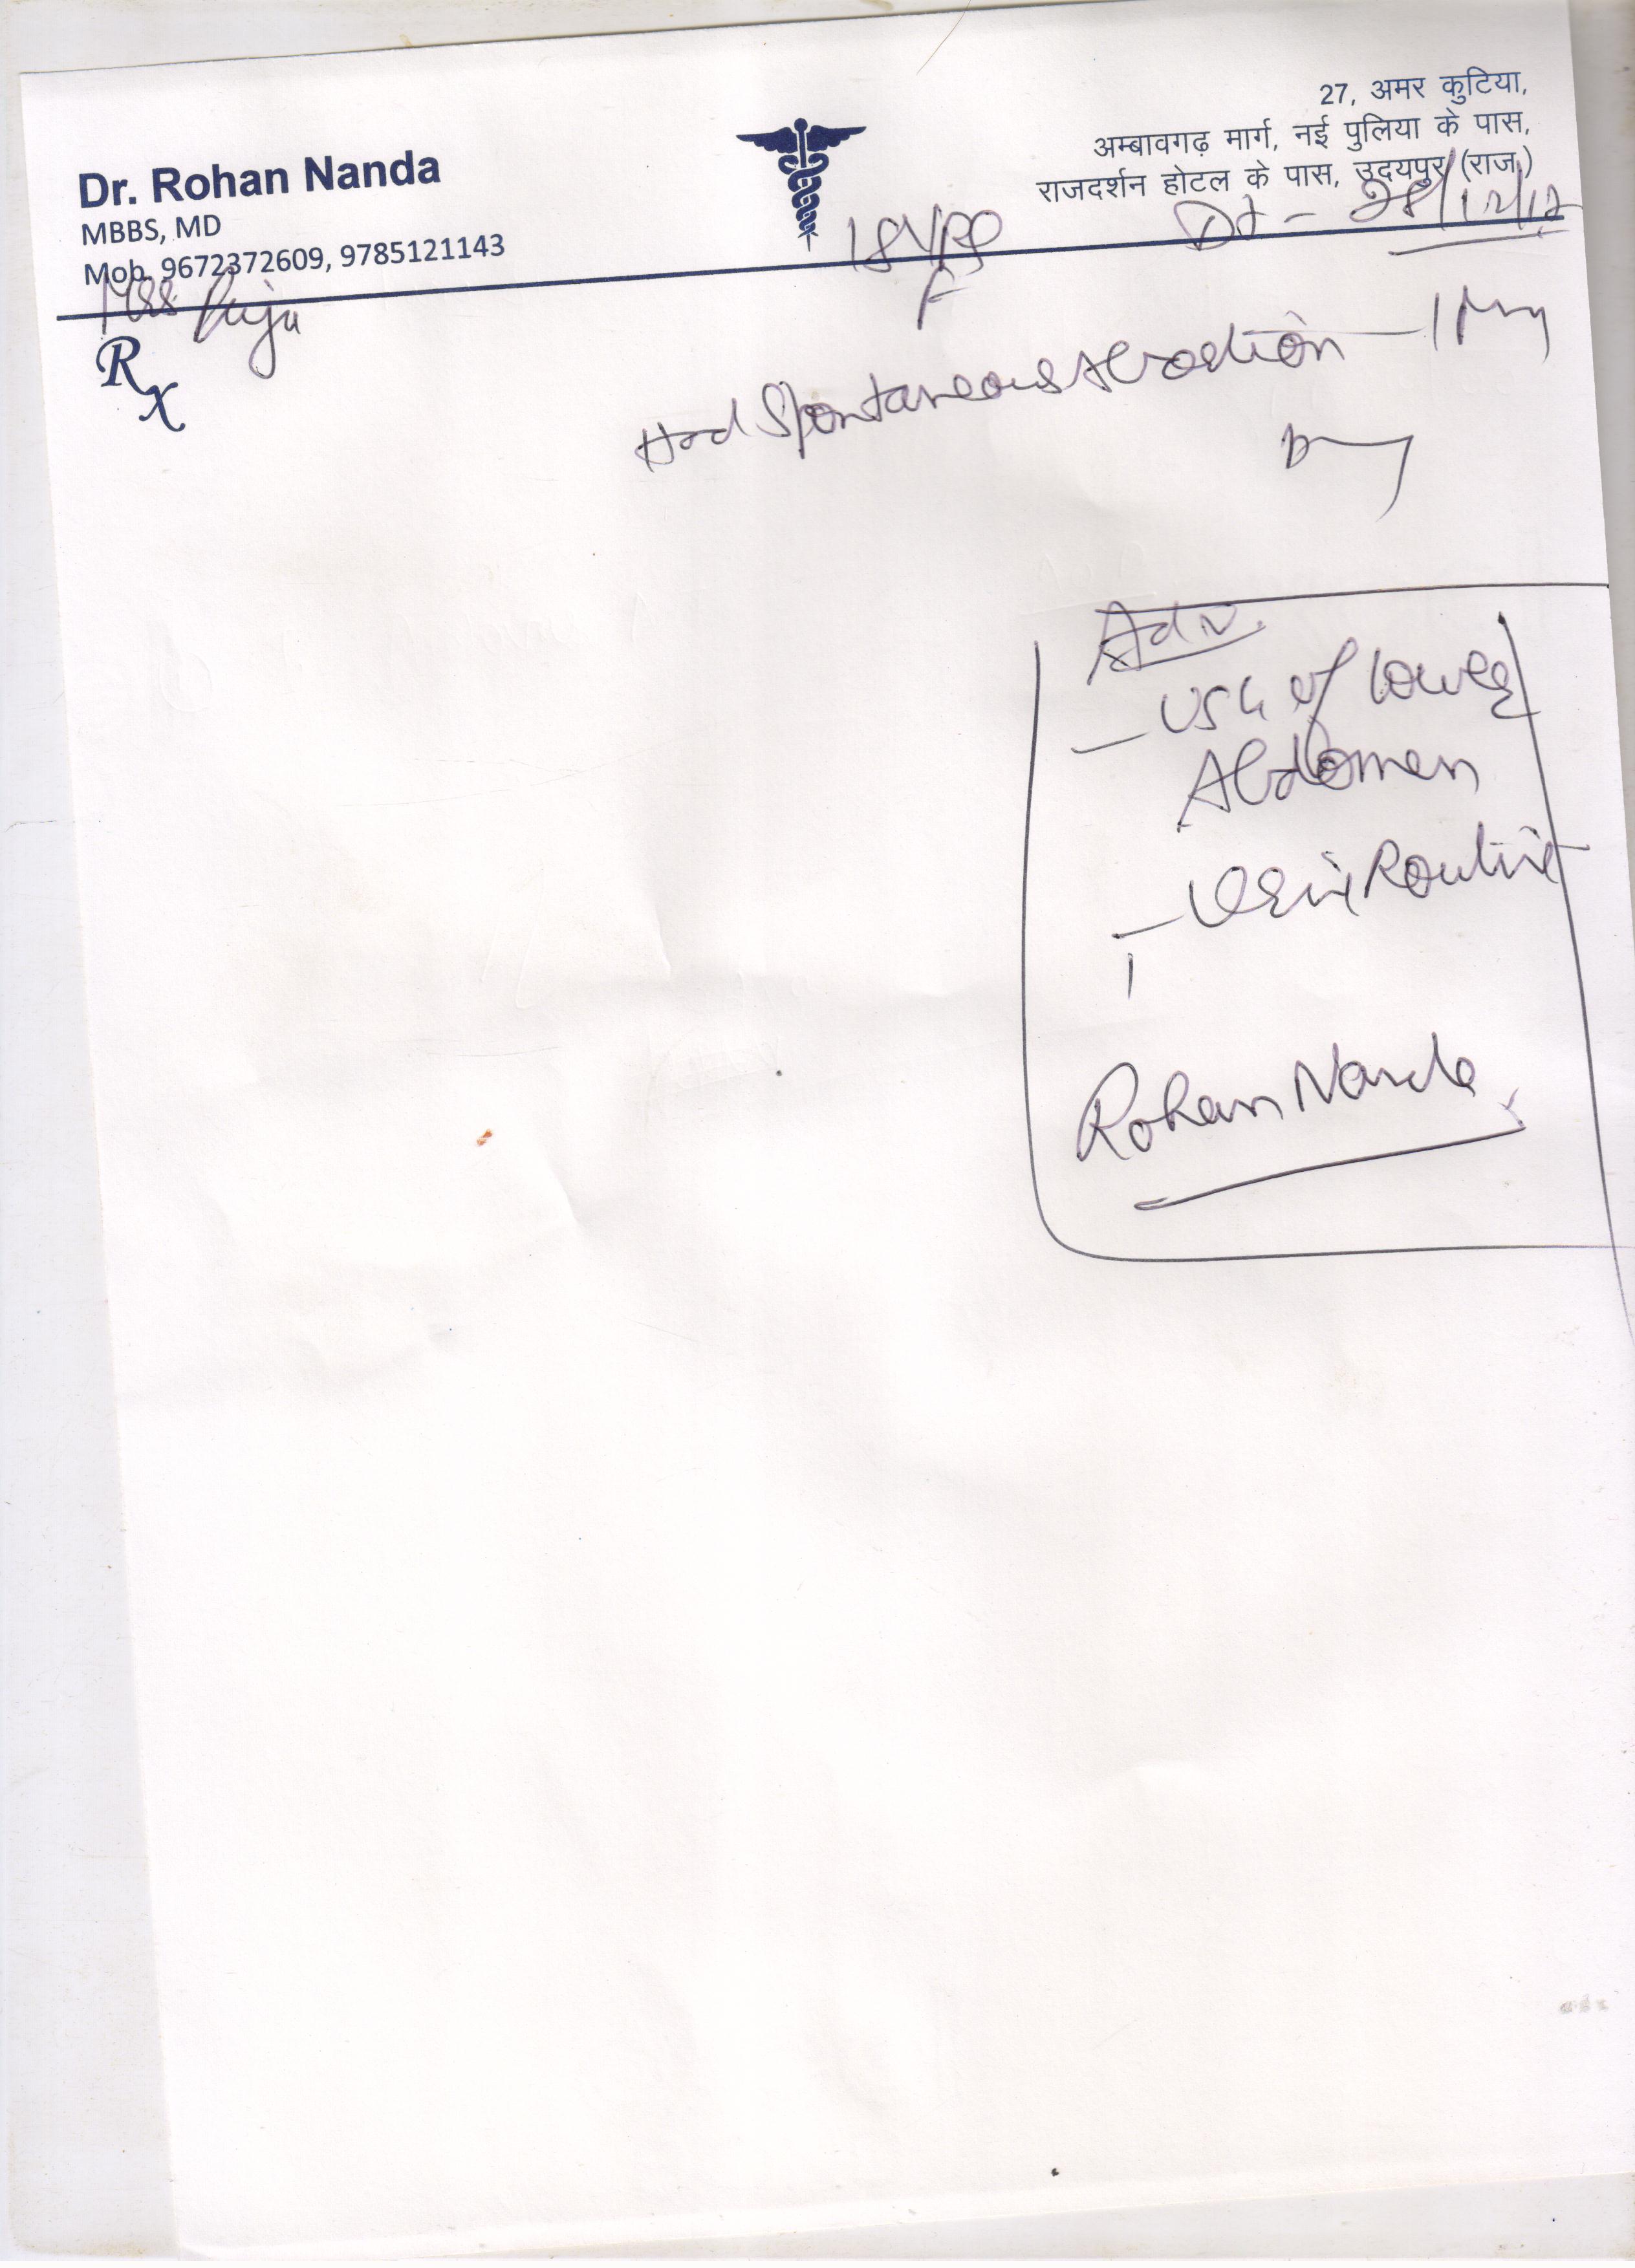 27, अमर कुटिया,
अम्बावगढ़ मार्ग, नई पुलिया के पास,
राजदर्शन होटल के पास, उदयपुर (राज.)
Dr. Rohan Nanda
MBBS, MD
Mob. 9672372609, 9785121143
Dt - 28/12/17
18 yrs
F
Rx
Had Spontaneous Abortion - 1
Adv.
- USG of Lower
Abdomen
- Urine Routine
Rohan Nanda